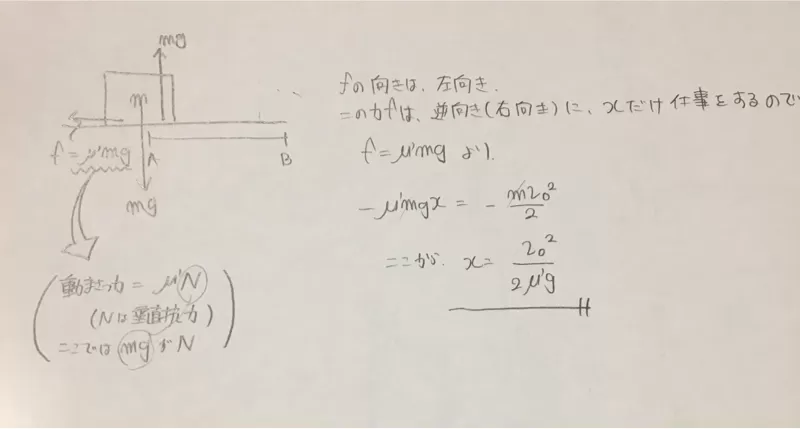 mg
m
f = μ'mg
A
B
mg
動まさつ力 = μ'N
(Nは垂直抗力)
ここでは mg が N
fの向きは、左向き.
この力fは、逆向き(右向き)に、xだけ仕事をするので
f = μ'mg より.
-μ'mgx = - mv₀²/2
ここから. x = v₀²/2μ'g